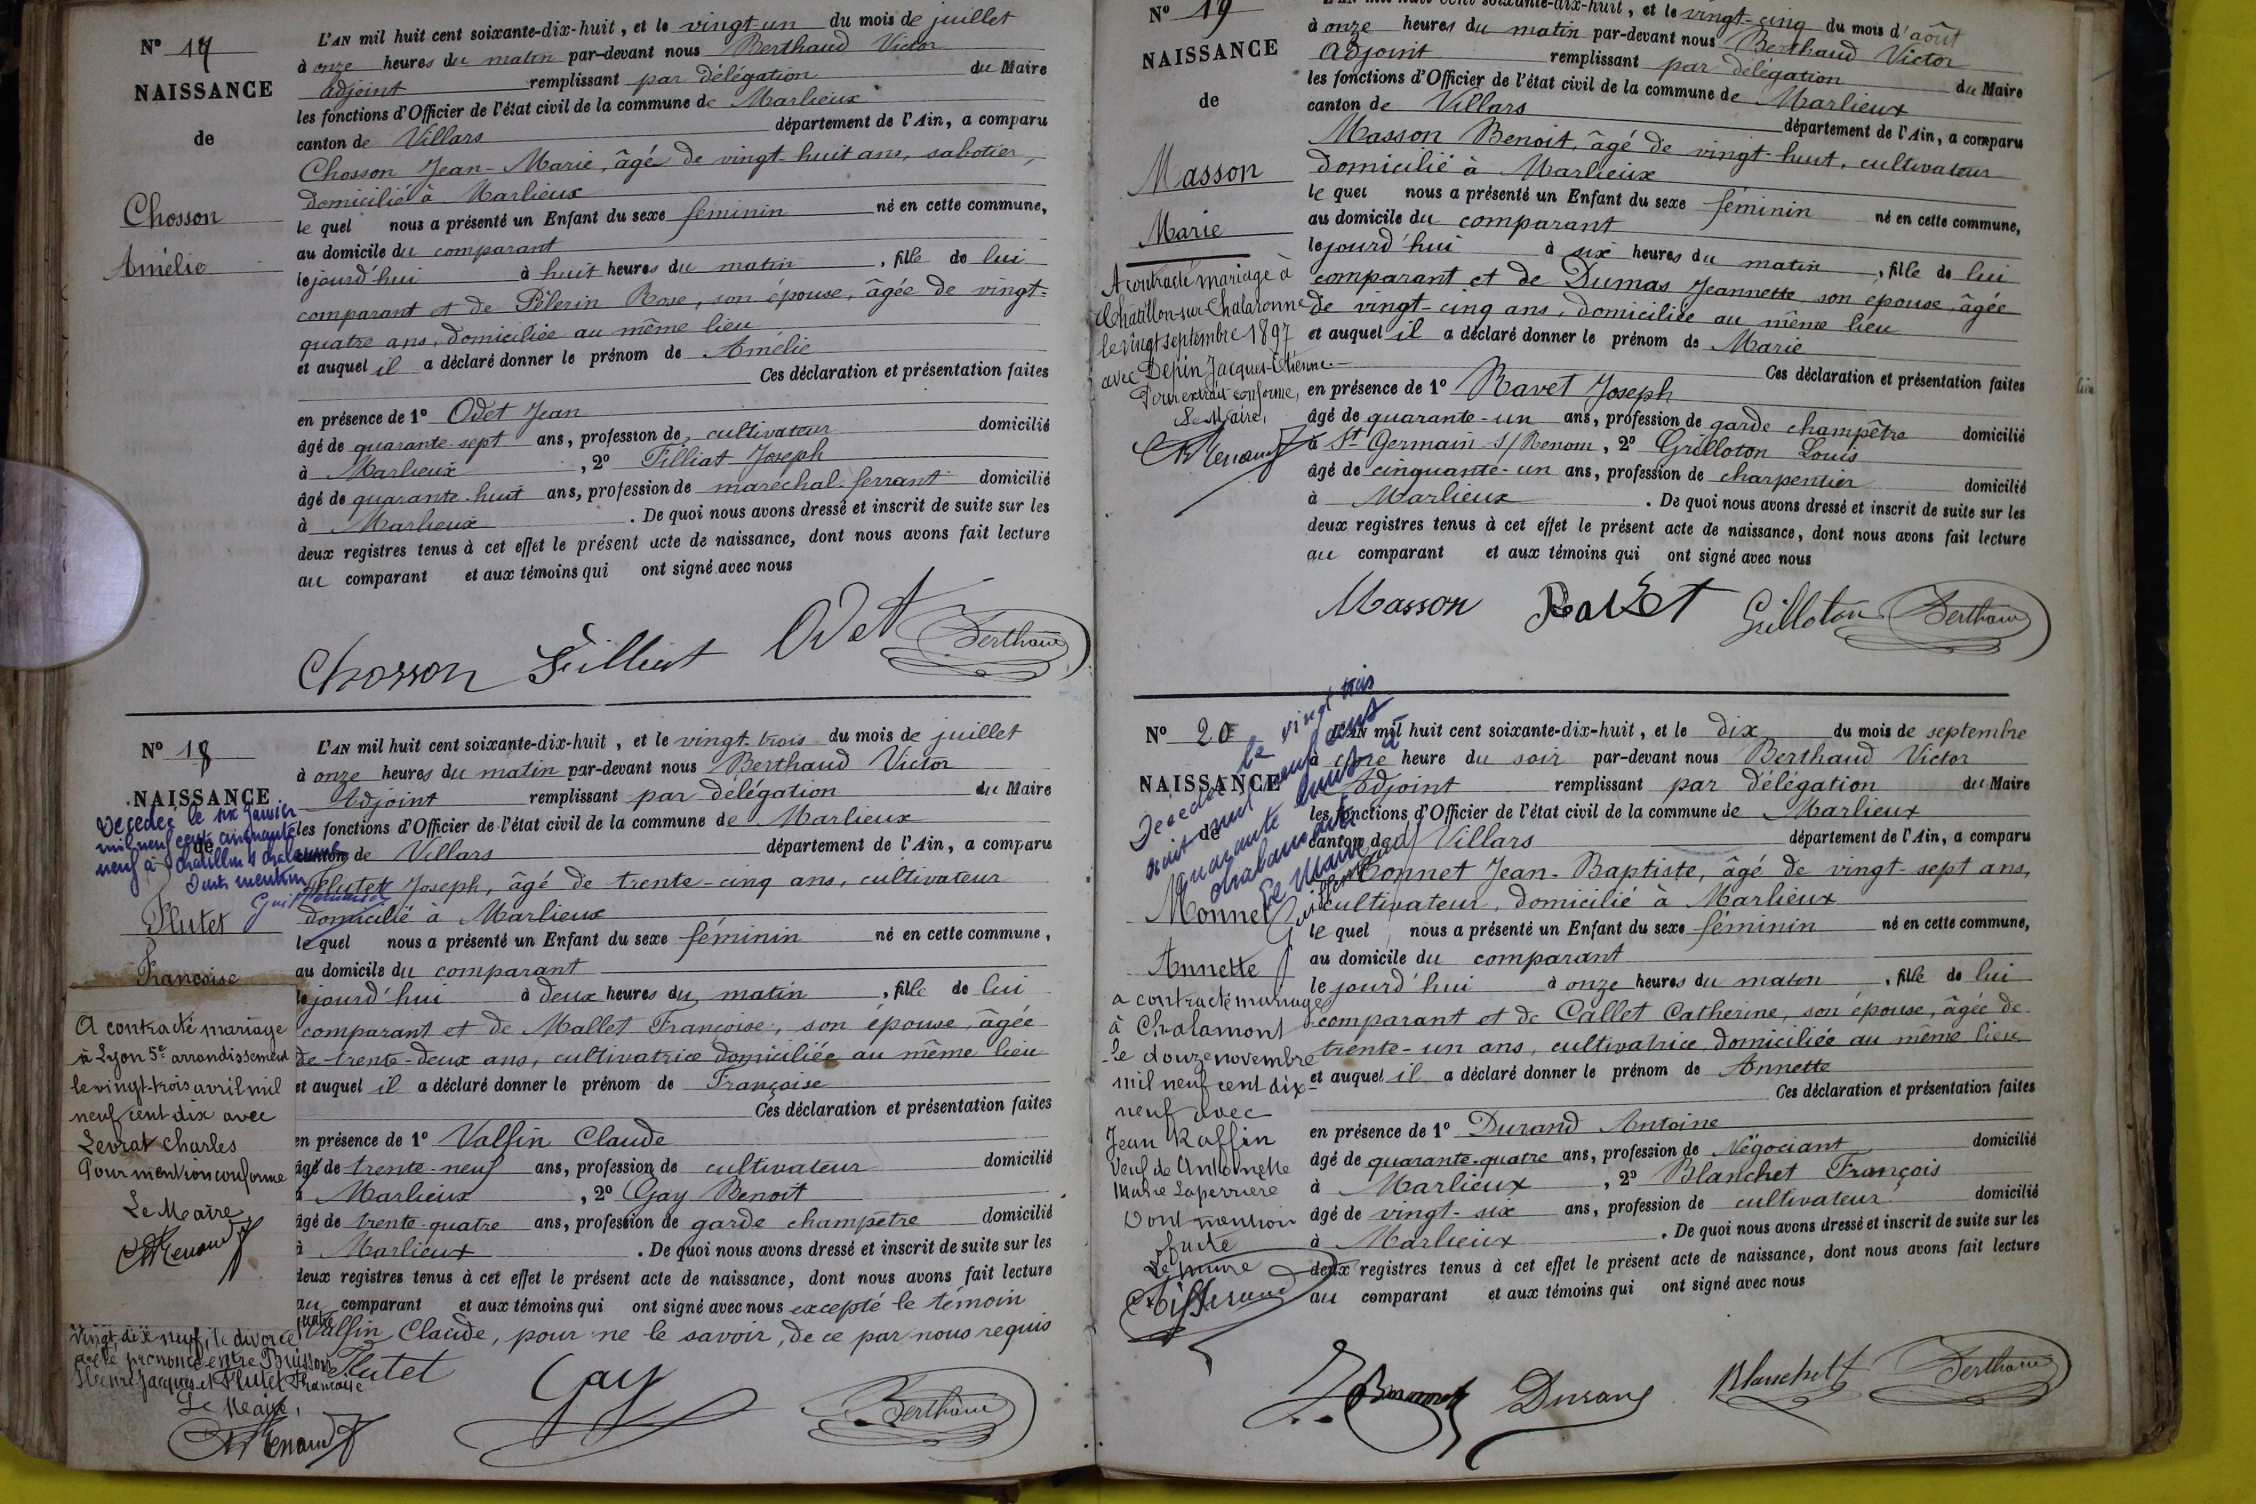 N° 17
NAISSANCE
de
Chosson
Amélie
L'AN mil huit cent soixante-dix-huit, et le vingt-un du mois de juillet
à onze heures du matin par-devant nous Berthaud Victor
adjoint remplissant par délégation du Maire
les fonctions d'Officier de l'état civil de la commune de Marlieux
canton de Villars département de l'Ain, a comparu
Chosson Jean-Marie, âgé de vingt-huit ans, sabotier,
domicilié à Marlieux
le quel nous a présenté un Enfant du sexe féminin né en cette commune,
au domicile du comparant
le jourd'hui à huit heures du matin, fille de lui
comparant et de Pélerin Rose, son épouse, âgée de vingt-
quatre ans, domiciliée au même lieu
et auquel il a déclaré donner le prénom de Amélie
Ces déclaration et présentation faites
en présence de 1° Odet Jean
âgé de quarante-sept ans, profession de cultivateur domicilié
à Marlieux, 2° Filliat Joseph
âgé de quarante-huit ans, profession de maréchal-ferrant domicilié
à Marlieux. De quoi nous avons dressé et inscrit de suite sur les
deux registres tenus à cet effet le présent acte de naissance, dont nous avons fait lecture
au comparant et aux témoins qui ont signé avec nous
Chosson Filliat Odet Berthaud
N° 18
NAISSANCE
de
Décédée le six janvier
mil neuf cent cinquante
neuf à Chatillon s Chalaronne
Dont mention
Flutet
Françoise
A contracté mariage
à Lyon 5e arrondissement
le vingt-trois avril mil
neuf cent dix avec
Levrat Charles
Pour mention conforme
Le Maire
Renaud
vingt-dix neuf, le divorce
a été prononcé entre Buisson
Jacques et Flutet Françoise
Le Maire,
Renaud
L'AN mil huit cent soixante-dix-huit, et le vingt-trois du mois de juillet
à onze heures du matin par-devant nous Berthaud Victor
Adjoint remplissant par délégation du Maire
les fonctions d'Officier de l'état civil de la commune de Marlieux
canton de Villars département de l'Ain, a comparu
Flutet Joseph, âgé de trente-cinq ans, cultivateur
domicilié à Marlieux
le quel nous a présenté un Enfant du sexe féminin né en cette commune,
au domicile du comparant
le jourd'hui à deux heures du matin, fille de lui
comparant et de Mallet Françoise, son épouse, âgée
de trente-deux ans, cultivatrice domiciliée au même lieu
et auquel il a déclaré donner le prénom de Françoise
Ces déclaration et présentation faites
en présence de 1° Valfin Claude
âgé de trente-neuf ans, profession de cultivateur domicilié
à Marlieux, 2° Gay Benoit
âgé de trente-quatre ans, profession de garde champêtre domicilié
à Marlieux. De quoi nous avons dressé et inscrit de suite sur les
deux registres tenus à cet effet le présent acte de naissance, dont nous avons fait lecture
au comparant et aux témoins qui ont signé avec nous excepté le témoin
Valfin Claude, pour ne le savoir, de ce par nous requis
Flutet Gay Berthaud
N° 19
NAISSANCE
de
Masson
Marie
A contracté mariage à
Chatillon-sur-Chalaronne
le vingt septembre 1897
avec Depin Jacques-Etienne
Pour extrait conforme,
Le Maire,
Renaud
L'AN mil huit cent soixante-dix-huit, et le vingt-cinq du mois d'août
à onze heures du matin par-devant nous Berthaud Victor
Adjoint remplissant par délégation du Maire
les fonctions d'Officier de l'état civil de la commune de Marlieux
canton de Villars département de l'Ain, a comparu
Masson Benoit, âgé de vingt-huit, cultivateur
domicilié à Marlieux
le quel nous a présenté un Enfant du sexe féminin né en cette commune,
au domicile du comparant
le jourd'hui à six heures du matin, fille de lui
comparant et de Dumas Jeannette son épouse, âgée
de vingt-cinq ans, domiciliée au même lieu
et auquel il a déclaré donner le prénom de Marie
Ces déclaration et présentation faites
en présence de 1° Ravet Joseph
âgé de quarante-un ans, profession de garde champêtre domicilié
à St Germain s/Renom, 2° Grilloton Louis
âgé de cinquante-un ans, profession de charpentier domicilié
à Marlieux. De quoi nous avons dressé et inscrit de suite sur les
deux registres tenus à cet effet le présent acte de naissance, dont nous avons fait lecture
au comparant et aux témoins qui ont signé avec nous
Masson Ravet Grilloton Berthaud
N° 20
NAISSANCE
de
Décédée le vingt trois
août mil neuf cent
quarante huit à
Chalamont
Le Maire
Monnet
Annette
a contracté mariage
à Chalamont
le douze novembre
mil neuf cent dix-
neuf avec
Jean Raffin
veuf de Antoinette
Marie Laperrière
Dont mention
faite
Le maire
L'AN mil huit cent soixante-dix-huit, et le dix du mois de septembre
à une heure du soir par-devant nous Berthaud Victor
Adjoint remplissant par délégation du Maire
les fonctions d'Officier de l'état civil de la commune de Marlieux
canton de Villars département de l'Ain, a comparu
Monnet Jean-Baptiste, âgé de vingt-sept ans,
cultivateur, domicilié à Marlieux
le quel nous a présenté un Enfant du sexe féminin né en cette commune,
au domicile du comparant
le jourd'hui à onze heures du matin, fille de lui
comparant et de Callet Catherine, son épouse, âgée de
trente-un ans, cultivatrice, domiciliée au même lieu
et auquel il a déclaré donner le prénom de Annette
Ces déclaration et présentation faites
en présence de 1° Durand Antoine
âgé de quarante-quatre ans, profession de Négociant domicilié
à Marlieux, 2° Blanchet François
âgé de vingt-six ans, profession de cultivateur domicilié
à Marlieux. De quoi nous avons dressé et inscrit de suite sur les
deux registres tenus à cet effet le présent acte de naissance, dont nous avons fait lecture
au comparant et aux témoins qui ont signé avec nous
Durand Blanchet Berthaud